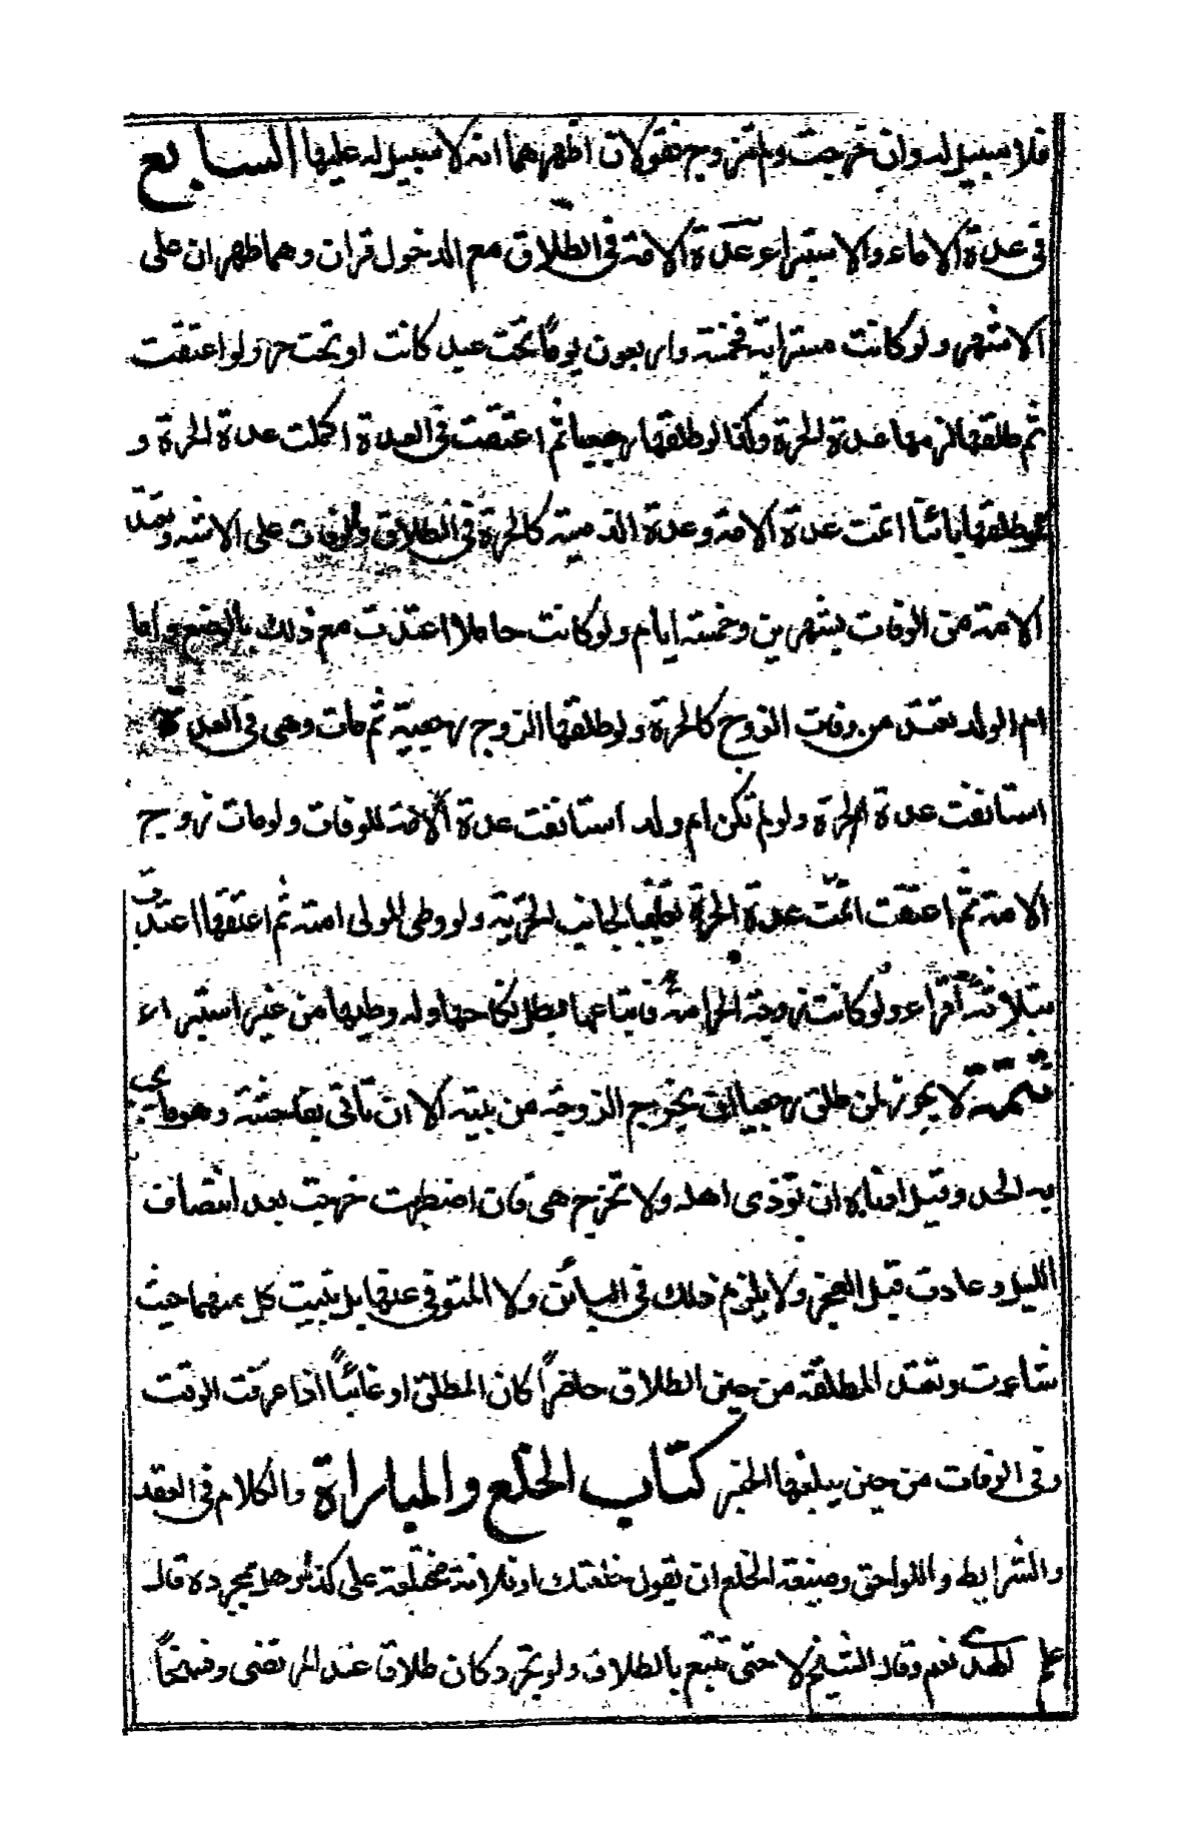 فلا سبيل له وان خرجت ولم تتزوج فقولان اظهرهما انه لا سبيل له عليها السابع
فى عدة الاماء والاستبراء عدة الامة فى الطلاق مع الدخول قران وهما طهران على
الاشهر ولو كانت مسترابة فخمسة واربعون يوما تحت عبد كانت او تحت حر ولو اعتقت
ثم طلقها لزمها عدة الحرة وكذا لو طلقها رجعيا ثم اعتقت فى العدة اكملت عدة الحرة و
لو طلقها بائنا اتمت عدة الامة وعدة الذمية كالحرة فى الطلاق والوفات على الاشبه وتعتد
الامة من الوفات بشهرين وخمسة ايام ولو كانت حاملا اعتدت مع ذلك بالوضع واما
ام الولد تعتد من وفات الزوج كالحرة ولو طلقها الزوج رجعية ثم مات وهى فى العدة
استانفت عدة الحرة ولو لم تكن ام ولد استانفت عدة الامة للوفات ولو مات زوج
الامة ثم اعتقت اتمت عدة الحرة تغليبا لجانب الحرية ولو وطى المولى امته ثم اعتقها اعتدت
بثلاثة أقراء ولو كانت زوجة الحر امة فابتاعها بطل نكاحها وله وطيها من غير استبراء
تتمة لا يجوز لمن طلق رجعيا ان يخرج الزوجة من بيته الا ان تاتى بفاحشة وهو ما يجب
به الحد وقيل ادناه ان توذى اهله ولا تخرج هى فان اضطرت خرجت بعد انتصاف
الليل وعادت قبل الفجر ولا يلزم ذلك فى البائن ولا المتوفى عنها بل تبيت كل منهما حيث
شاءت وتعتد المطلقة من حين الطلاق حاضراً كان المطلق او غائباً اذا عرفت الوقت
وفى الوفات من حين يبلغها الخبر كتاب الخلع والمباراة والكلام فى العقد
والشرايط واللواحق وصيغة الخلع ان يقول خلعتك او فلانة مختلعة على كذا وهل تجرده قال
علم الهدى نعم وقال الشيخ لا حتى تتبع بالطلاق ولو تجرد كان طلاقا عند المرتضى وفسخاً